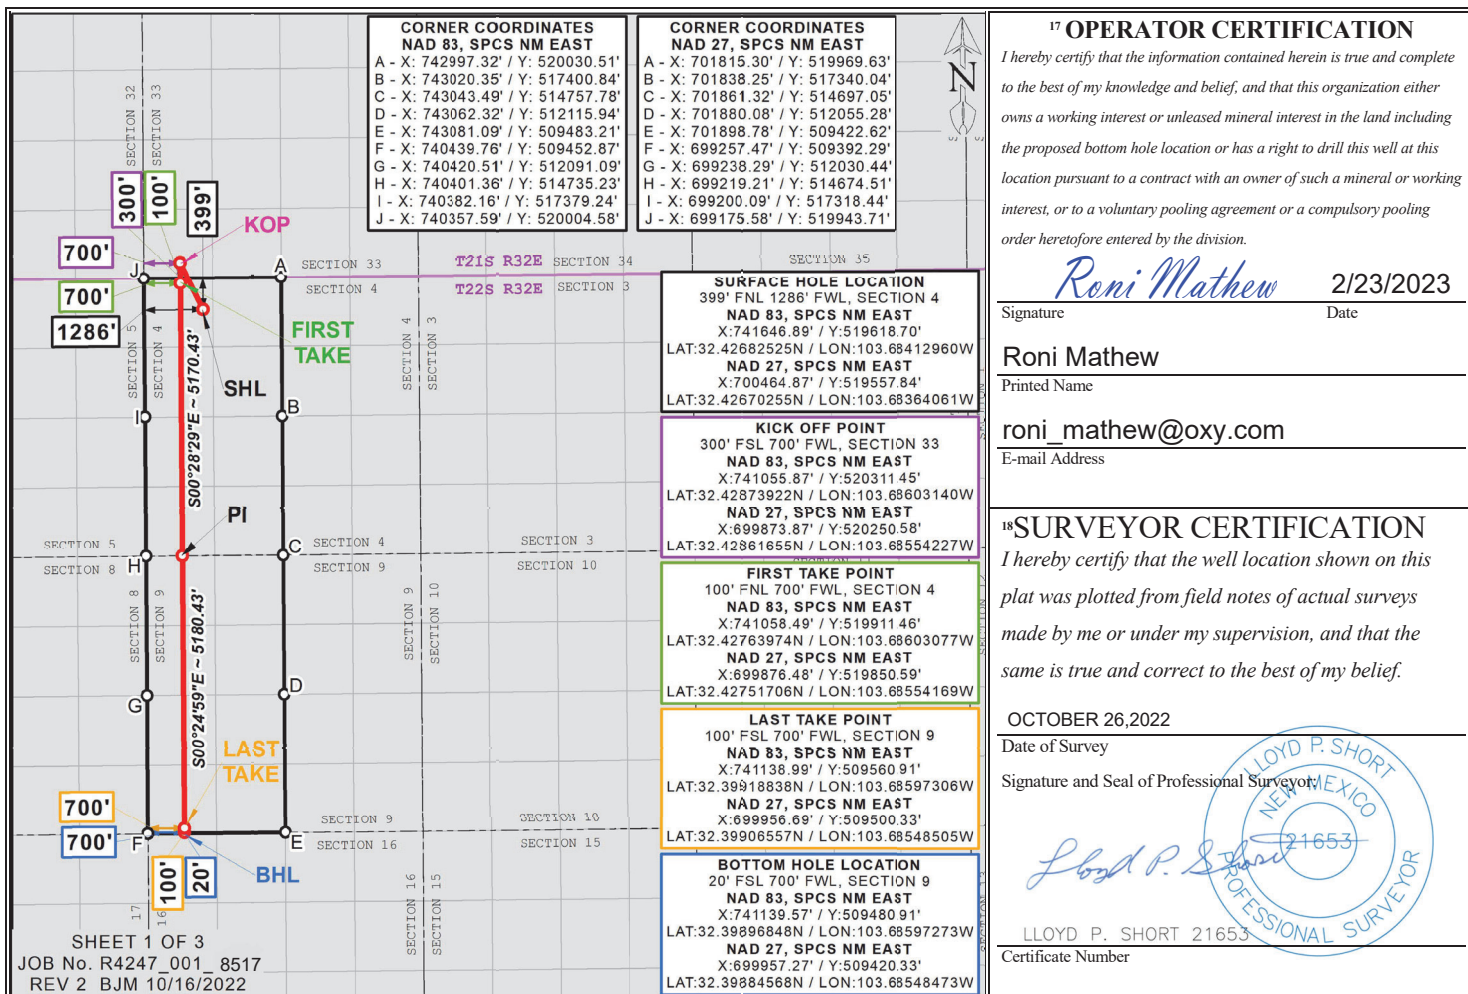 CORNER COORDINATES
NAD 83, SPCS NM EAST
A - X: 742997.32' / Y: 520030.51'
B - X: 743020.35' / Y: 517400.84'
C - X: 743043.49' / Y: 514757.78'
D - X: 743062.32' / Y: 512115.94'
E - X: 743081.09' / Y: 509483.21'
F - X: 740439.76' / Y: 509452.87'
G - X: 740420.51' / Y: 512091.09'
H - X: 740401.36' / Y: 514735.23'
I - X: 740382.16' / Y: 517379.24'
J - X: 740357.59' / Y: 520004.58'
CORNER COORDINATES
NAD 27, SPCS NM EAST
A - X: 701815.30' / Y: 519969.63'
B - X: 701838.25' / Y: 517340.04'
C - X: 701861.32' / Y: 514697.05'
D - X: 701880.08' / Y: 512055.28'
E - X: 701898.78' / Y: 509422.62'
F - X: 699257.47' / Y: 509392.29'
G - X: 699238.29' / Y: 512030.44'
H - X: 699219.21' / Y: 514674.51'
I - X: 699200.09' / Y: 517318.44'
J - X: 699175.58' / Y: 519943.71'
N
SECTION 32
SECTION 33
300'
100'
399'
KOP
700'
J
A
SECTION 33
T21S R32E
SECTION 34
SECTION 35
700'
SECTION 4
T22S R32E
SECTION 3
1286'
FIRST
TAKE
SECTION 5
SECTION 4
SECTION 4
SECTION 3
SHL
I
B
S00°28'29"E ~ 5170.43'
PI
SECTION 5
H
C
SECTION 4
SECTION 3
SECTION 8
SECTION 9
SECTION 10
SECTION 8
SECTION 9
SECTION 9
SECTION 10
S00°24'59"E ~ 5180.43'
G
D
LAST
TAKE
700'
700'
F
E
SECTION 9
SECTION 10
SECTION 16
SECTION 15
100'
20'
BHL
17
16
SECTION 16
SECTION 15
SHEET 1 OF 3
JOB No. R4247_001_ 8517
REV 2 BJM 10/16/2022
SURFACE HOLE LOCATION
399' FNL 1286' FWL, SECTION 4
NAD 83, SPCS NM EAST
X:741646.89' / Y:519618.70'
LAT:32.42682525N / LON:103.68412960W
NAD 27, SPCS NM EAST
X:700464.87' / Y:519557.84'
LAT:32.42670255N / LON:103.68364061W
KICK OFF POINT
300' FSL 700' FWL, SECTION 33
NAD 83, SPCS NM EAST
X:741055.87' / Y:520311.45'
LAT:32.42873922N / LON:103.68603140W
NAD 27, SPCS NM EAST
X:699873.87' / Y:520250.58'
LAT:32.42861655N / LON:103.68554227W
FIRST TAKE POINT
100' FNL 700' FWL, SECTION 4
NAD 83, SPCS NM EAST
X:741058.49' / Y:519911.46'
LAT:32.42763974N / LON:103.68603077W
NAD 27, SPCS NM EAST
X:699876.48' / Y:519850.59'
LAT:32.42751706N / LON:103.68554169W
LAST TAKE POINT
100' FSL 700' FWL, SECTION 9
NAD 83, SPCS NM EAST
X:741138.99' / Y:509560.91'
LAT:32.39918838N / LON:103.68597306W
NAD 27, SPCS NM EAST
X:699956.69' / Y:509500.33'
LAT:32.39906557N / LON:103.68548505W
BOTTOM HOLE LOCATION
20' FSL 700' FWL, SECTION 9
NAD 83, SPCS NM EAST
X:741139.57' / Y:509480.91'
LAT:32.39896848N / LON:103.68597273W
NAD 27, SPCS NM EAST
X:699957.27' / Y:509420.33'
LAT:32.39884568N / LON:103.68548473W
17 OPERATOR CERTIFICATION
I hereby certify that the information contained herein is true and complete
to the best of my knowledge and belief, and that this organization either
owns a working interest or unleased mineral interest in the land including
the proposed bottom hole location or has a right to drill this well at this
location pursuant to a contract with an owner of such a mineral or working
interest, or to a voluntary pooling agreement or a compulsory pooling
order heretofore entered by the division.
Roni Mathew 2/23/2023
Signature Date
Roni Mathew
Printed Name
roni_mathew@oxy.com
E-mail Address
18 SURVEYOR CERTIFICATION
I hereby certify that the well location shown on this
plat was plotted from field notes of actual surveys
made by me or under my supervision, and that the
same is true and correct to the best of my belief.
OCTOBER 26,2022
Date of Survey
Signature and Seal of Professional Surveyor:
LLOYD P. SHORT
NEW MEXICO
21653
PROFESSIONAL SURVEYOR
Lloyd P. Short
LLOYD P. SHORT 21653
Certificate Number